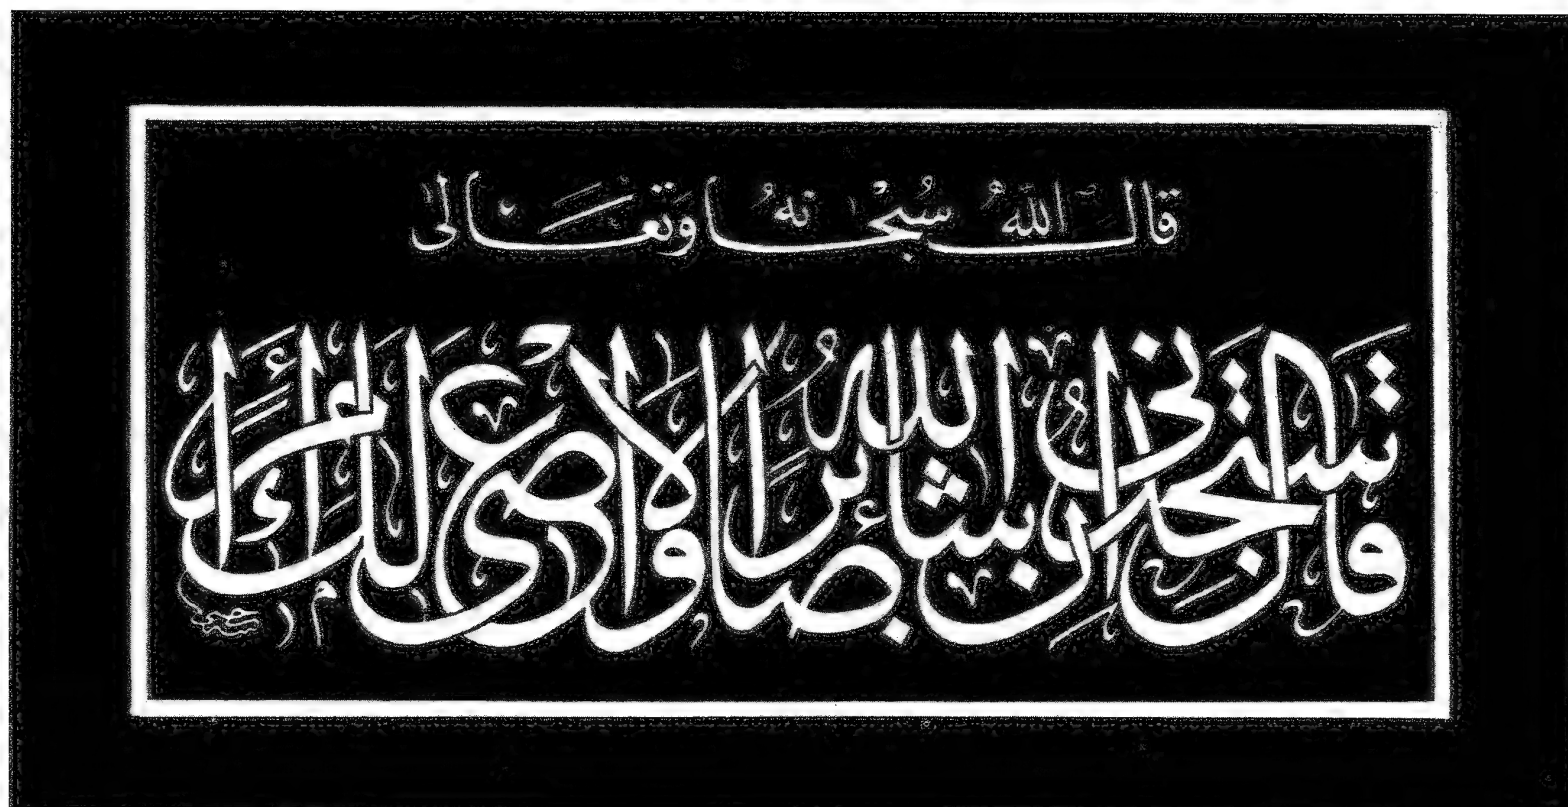 قَالَ اللّٰهُ سُبْحَانَهُ وَتَعَالىٰ
قَالَ سَتَجِدُنِي إِنْ شَاءَ اللّٰهُ صَابِرًا وَلَا أَعْصِي لَكَ أَمْرًا